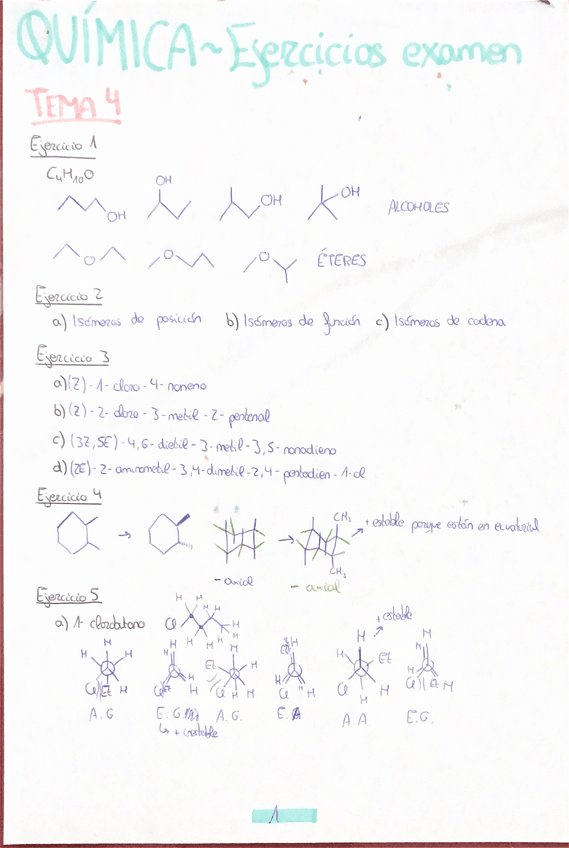 QUÍMICA ~ Ejercicios examen
TEMA 4
Ejercicio 1
C4H10O
OH OH OH OH ALCOHOLES
O O O ÉTERES
Ejercicio 2
a) Isómeros de posición b) Isómeros de función c) Isómeros de cadena
Ejercicio 3
a) (Z) - 1 - cloro - 4 - noneno
b) (Z) - 2 - cloro - 3 - metil - 2 - pentenal
c) (3Z, 5E) - 4,6 - dietil - 3 - metil - 3,5 - nonadieno
d) (2E) - 2 - aminometil - 3,4 - dimetil - 2,4 - pentadien - 1 - ol
Ejercicio 4
CH3 + estable porque están en ecuatorial
CH3
- axial - axial
Ejercicio 5
a) 1 - clorobutano Cl H H H H H H H H
+ estable
H H H H H Et H Et H H
Cl Et H Cl Et H Cl H H Cl H H Cl H H Cl Et H
A.G E.G A.G. E.A A.A E.G.
+ inestable
1